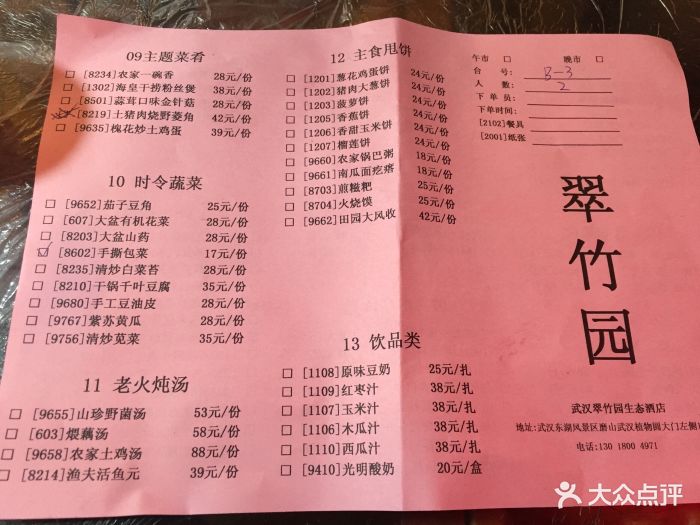 09主题菜肴
[8234]农家一碗香 28元/份
[1302]海皇干捞粉丝煲 38元/份
[8501]蒜茸口味金针菇 28元/份
[8219]土猪肉烧野菱角 42元/份
[9635]槐花炒土鸡蛋 39元/份
10 时令蔬菜
[9652]茄子豆角 25元/份
[607]大盆有机花菜 28元/份
[8203]大盆山药 28元/份
[8602]手撕包菜 17元/份
[8235]清炒白菜苔 28元/份
[8210]干锅千叶豆腐 35元/份
[9680]手工豆油皮 28元/份
[9767]紫苏黄瓜 28元/份
[9756]清炒苋菜 35元/份
11 老火炖汤
[9655]山珍野菌汤 53元/份
[603]煨藕汤 58元/份
[9658]农家土鸡汤 88元/份
[8214]渔夫活鱼元 39元/份
12 主食甩饼
[1201]葱花鸡蛋饼 24元/份
[1202]猪肉大葱饼 24元/份
[1203]菠萝饼 24元/份
[1205]香蕉饼 24元/份
[1206]香甜玉米饼 24元/份
[1207]榴莲饼 24元/份
[9660]农家锅巴粥 18元/份
[9661]南瓜面疙瘩 18元/份
[8703]煎糍粑 25元/份
[8704]火烧馍 25元/份
[9662]田园大风收 42元/份
13 饮品类
[1108]原味豆奶 25元/扎
[1109]红枣汁 38元/扎
[1107]玉米汁 38元/扎
[1106]木瓜汁 38元/扎
[1110]西瓜汁 38元/扎
[9410]光明酸奶 20元/盒
午市 晚市
台 号: B-3
人 数: 2
下 单 员:
下单时间:
[2102]餐具
[2001]纸张
翠竹园
武汉翠竹园生态酒店
地址:武汉东湖风景区磨山武汉植物园大门左侧
电话:130 1800 4971
大众点评